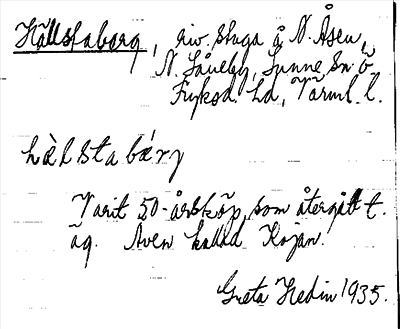 Hällstaborg, riv. stuga å N. Åsen,
N. Såneby, Sunne sn ö.
Fryksd. hd, Värml. l.
hàlstabárg
Varit 50-årsköp, som återgått t.
äg. Även kallad Kojan.
Greta Hedin 1935.